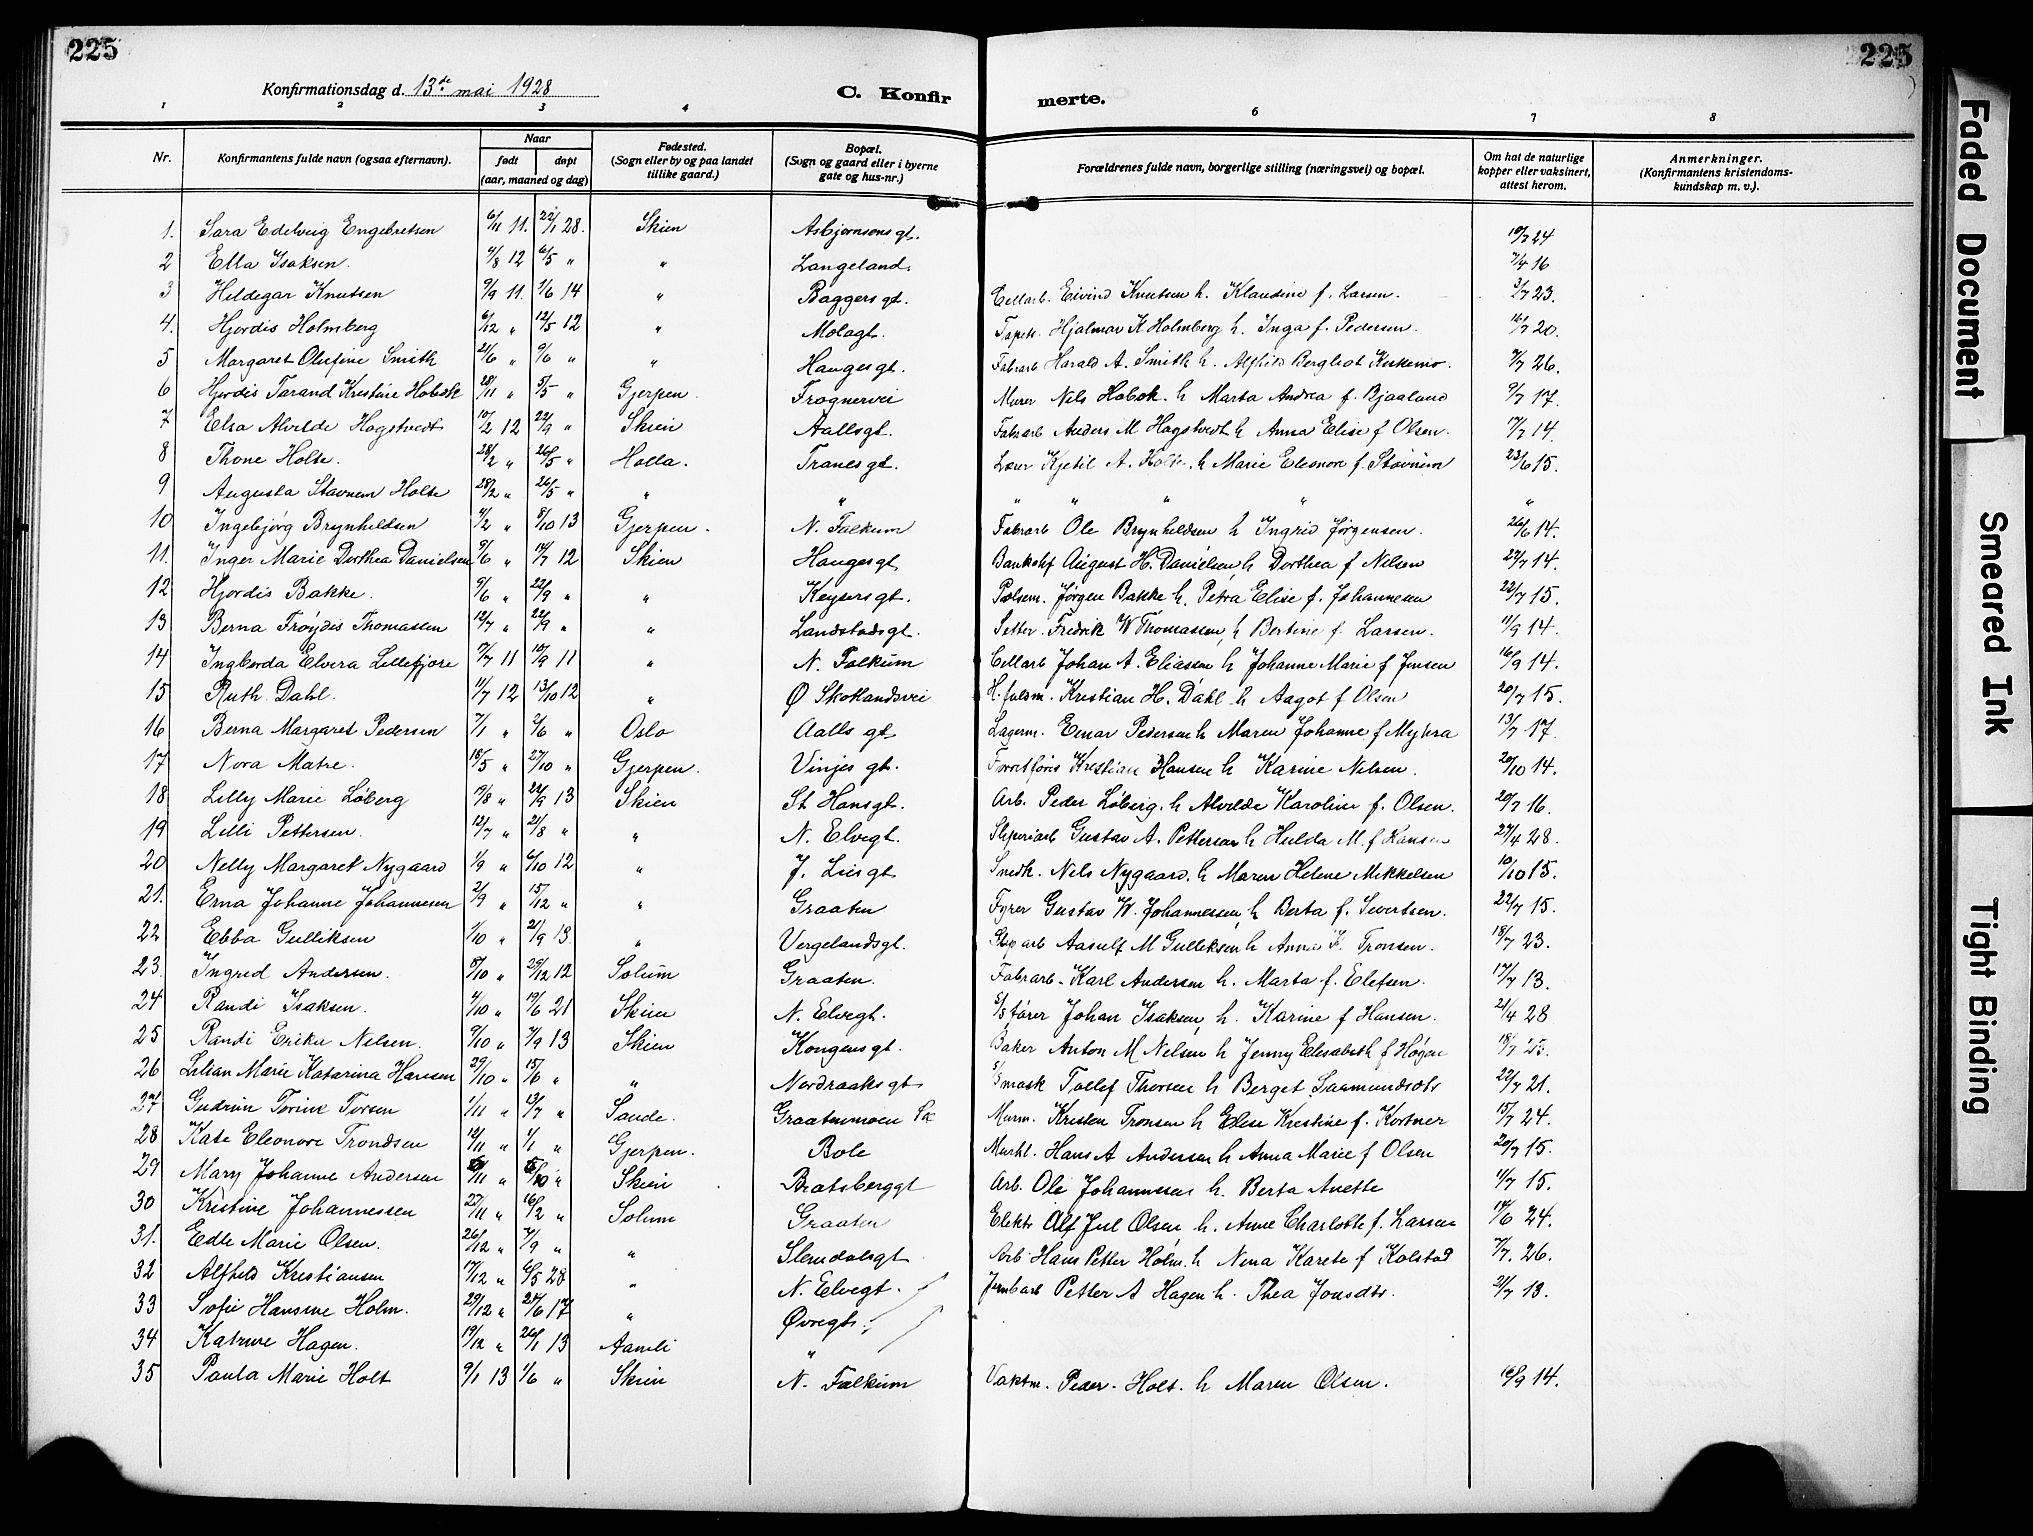 225
225
Konfirmationsdag d. 13de mai 1928
C. Konfir
merte.
1 2 3 4 6 7 8
Nr. Konfirmantens fulde navn (ogsaa efternavn). Naar født døpt (aar, maaned og dag) Fødested. (Sogn eller by og paa landet tillike gaard.) Bopæl. (Sogn og gaard eller i byerne gate og hus-nr.) Forældrenes fulde navn, borgerlige stilling (næringsvei) og bopæl. Om hat de naturlige kopper eller vaksinert, attest herom. Anmerkninger. (Konfirmantens kristendoms-kundskap m. v.).
1. Sara Edelveig Engebretsen 6/11 11. 22/1 28. Skien Asbjørnsens gt. 10/7 24
2 Ella Isaksen. 4/8 12 6/5 " " Langeland. 7/4 16
3 Hildegar Knutsen 9/9 11. 1/6 14 " Baggers gt. Cellarb. Eivind Knutsen h. Klaudine f. Larsen. 3/7 23.
4. Hjørdis Holmberg 6/12 " 12/5 12 " Molagt. Tapets. Hjalmar K Holmberg h. Inga f. Pedersen. 16/7 20.
5 Margaret Olufine Smith 21/6 " 9/6 " " Hauges gt. Fabrarb Harald A. Smith h. Alfhild Bergliot 7/7 26.
6 Hjørdis Tarand Kristine Hobæk 28/11 " 5/5 " Gjerpen. Frognervei Murer Nils Hobæk. h Marta Andrea f. Bjaaland 9/7 17.
7 Elsa Alvilde Hagstvedt 10/2 12 22/9 " Skien Aallsgt. Fabrarb Anders M Hagstvedt h Anna Elise f Olsen. 17/7 14.
8 Thone Holte. 28/2 " 26/5 " Holla. Tranes gt. Lærer Kjetil A. Holte. h Marie Eleonore f. Stavnem 23/6 15.
9 Augusta Stavnem Holte 28/2 " 26/5 " " " " " " " "
10 Ingebjørg Brynhildsen 4/2 " 8/10 13 Gjerpen. N. Falkum Fabrarb Ole Brynhildsen h Ingrid Jørgensen. 26/6 14.
11. Inger Marie Dorthea Danielsen 9/6 " 14/7 12 Skien Hauges gt Bankchef August H. Danielsen h Dorthea f Nilsen 22/7 14.
12 Hjørdis Bakke. 9/6 " 22/9 " " Keysers gt. Pølsem. Jørgen Bakke h. Petra Elise f. Johannesen 22/7 15.
13 Berna Frøydis Thomassen 12/7 " 22/9 " " Landstadsgt. Setter. Fredrik W Thomassen h Bertine f. Larsen. 11/9 14.
14 Ingborda Elvera Lillefjøre 17/7 11 10/9 11 " N. Falkum Cellarb Johan A. Eliassen h Johanne Marie f Jensen 16/9 14.
15 Ruth Dahl. 11/7 12 13/10 12 " Ø Skotlandsvei Kristian H. Dahl h Aagot f Olsen 20/7 15.
16 Berna Margaret Pedersen 7/1 " 2/6 " Oslo Aalls gt Lagerm. Einar Pedersen h Maren Johanne f Myhra 13/7 17.
17 Nora Matre. 18/5 " 27/10 " Gjerpen. Vinjes gt. Kristian Hansen h Karine Nilsen. 20/10 14.
18 Lilly Marie Løberg 19/8 " 22/9 13 Skien St Hansgt. Arb. Peder Løberg. h Alvilde Karoline f. Olsen. 20/7 16.
19 Lilli Pettersen. 12/7 " 21/8 " " N. Elvegt. Sliperiarb Gustav A. Pettersen h Hulda M. f Hansen 27/4 28.
20 Nelly Margaret Nygaard 1/9 " 6/10 12 " J. Lies gt Snedk. Nils Nygaard. h Maren Helene Mikkelsen 10/10 15.
21. Erna Johanne Johannesen 2/9 " 15/12 " " Graaten Fyrer Gustav W. Johannessen h Berta f. Sivertsen. 22/7 15.
22 Ebba Gulliksen 1/10 " 21/9 13 " Vergelandsgt. Slip arb Aasulf M Gulliksen h Anna K. Tronsen. 18/7 23.
23. Ingrid Andersen. 8/10 " 29/12 12 Solum Graaten. Fabrarb. Karl Andersen h. Marta f. Elefsen. 17/7 13.
24 Randi Isaksen. 4/10 " 19/6 21 Skien N. Elvegt. s/s fører Johan Isaksen h. Karine f Hansen. 21/4 28
25 Randi Erika Nilsen. 9/10 " 7/9 13 Skien Kongensgt. Baker Anton M Nilsen h Jenny Elisabeth f Høgen 18/7 23.
26 Lilian Marie Katarina Hansen 29/10 " 15/6 " " Nordraaks gt s/s mask Tollef Thorsen h Berget Saamundsdtr 22/7 21.
27 Gudrun Torine Torsen 1/11 " 13/7 " Sande. Graatenmoen Sk Murm. Kristen Tronsen h Elise Kristine f. Kortner 15/7 24.
28 Kate Eleonore Trondsen 12/11 " 1/1 " Gjerpen. Bole Murhl. Hans A Andersen h Anna Marie f Olsen 20/7 15.
29 Mary Johanne Andersen Skien Bratsberggt Arb. Ole Johannesen h. Berta Anette 4/7 15.
30 Kristine Johannessen 27/11 " 16/2 " Solum Graaten Elektr Alf Juel Olsen h. Anne Charlotte f. Larsen 14/6 24.
31. Edle Marie Olsen. 26/12 " 7/9 " " Slemdalsgt Arb. Hans Petter Holm. h Nina Karete f Kolstad 7/7. 26.
32 Alfhild Kristiansen 17/12 " 6/5 28 " N. Elvegt. Jernbarb Petter A Hagen h. Thea Jonsdtr. 21/7 13.
33 Sofie Hansine Holm. 29/12 " 27/6 17 " Øvregt.
34 Katrine Hagen. 19/12 " 26/1 13 Aamli "
35 Paula Marie Holt 9/1 13 1/6 " Skien N. Falkum Vaktm. Peder. Holt. h Maren Olsen. 16/9 14.
Faded Document
Smeared Ink
Tight Binding